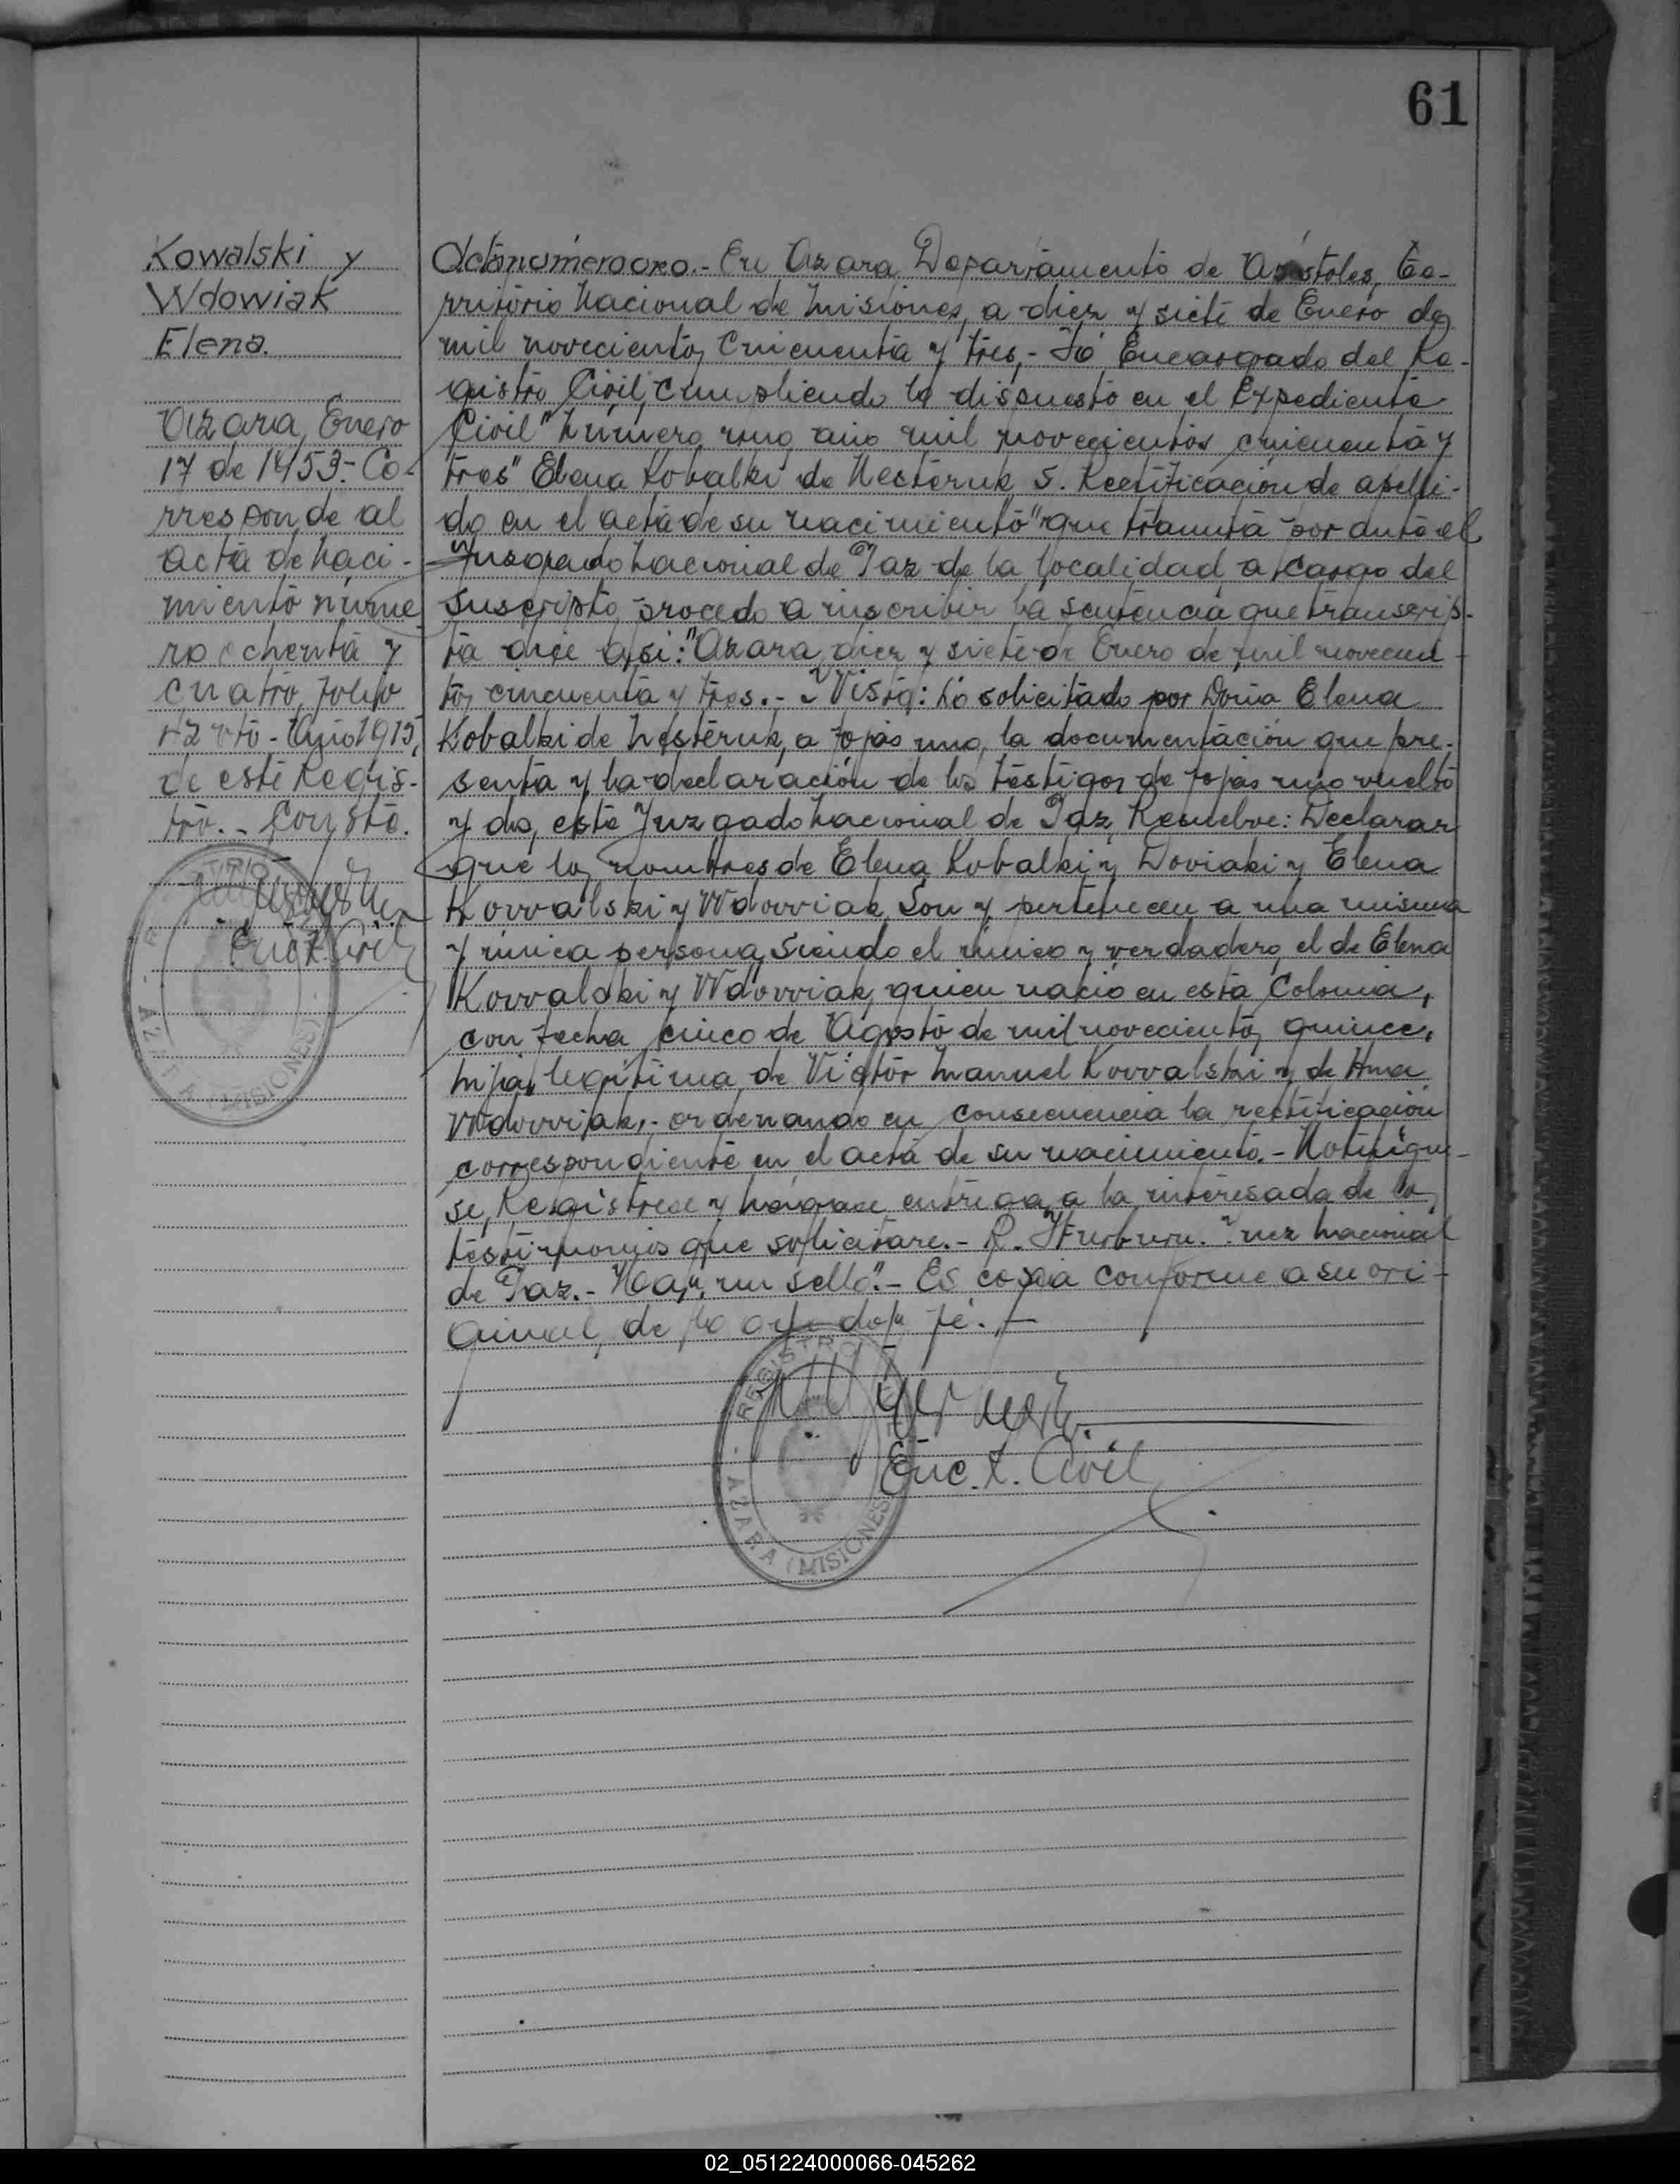 61
Kowalski y
Wdowiak
Elena.
Azara, Enero
17 de 1953.- Co-
rresponde al
acta de naci-
miento núme
ro ochenta y
cuatro, folio
42 vto - Año 1915,
de este Regis-
tro.- Conste.
Enc. R. Civil
AZARA (MISIONES)
Acta número ocho.- En Azara, Departamento de Apóstoles, Te-
rritorio Nacional de Misiones, a diez y siete de Enero de
mil novecientos cincuenta y tres,- Yo Encargado del Re-
gistro Civil, cumpliendo lo dispuesto en el Expediente
Civil "Número uno año mil novecientos cincuenta y
tres" Elena Kobalki de Nesteruk S. Rectificación de apelli-
do en el acta de su nacimiento" que tramita por ante el
Juzgado Nacional de Paz de la localidad a cargo del
suscripto, procedo a inscribir la sentencia que transcrip-
ta dice así: "Azara, diez y siete de Enero de mil novecien-
tos cincuenta y tres.- Vista: Lo solicitado por Doña Elena
Kobalki de Nesteruk, a fojas uno, la documentación que pre-
senta y la declaración de los testigos de fojas uno vuelto
y dos, este Juzgado Nacional de Paz, Resuelve: Declarar
que los nombres de Elena Kobalki y Doviaki y Elena
Kowalski y Wdowiak, Son y pertenecen a una misma
y única persona, siendo el único y verdadero, el de Elena
Kowalski y Wdowiak, quien nació en esta Colonia,
con fecha cinco de Agosto de mil novecientos quince,
hija legítima de Victor Manuel Kowalski y de Ana
Wdowiak,- ordenando en consecuencia la rectificación
correspondiente en el acta de su nacimiento.- Notifíque-
se, Regístrese y hágase entrega a la interesada de los
testimonios que solicitare.- R. Juez Nacional
de Paz.- Hay un sello".- Es copia conforme a su ori-
ginal, de lo que doy fé.-
Enc. R. Civil
REGISTRO
AZARA (MISIONES)
02_051224000066-045262